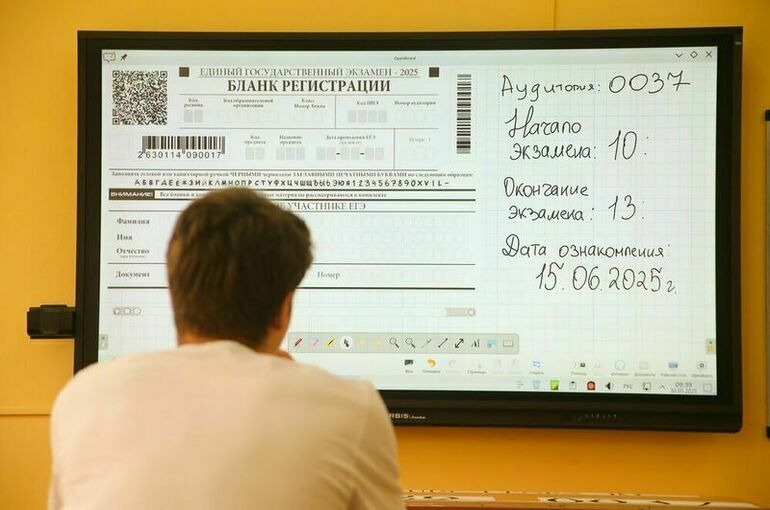 OpenBoard
ЕДИНЫЙ ГОСУДАРСТВЕННЫЙ ЭКЗАМЕН - 2025
БЛАНК РЕГИСТРАЦИИ
Код региона
Код образовательной организации
Класс
Номер Буква
Код ППЭ
Номер аудитории
2630114 090017
Код предмета
Название предмета
Дата проведения ЕГЭ
Заполнять гелевой или капиллярной ручкой ЧЕРНЫМИ чернилами ЗАГЛАВНЫМИ ПЕЧАТНЫМИ БУКВАМИ по следующим образцам:
АБВГДЕЁЖЗИЙКЛМНОПРСТУФХЦЧШЩЪЫЬЭЮЯ1234567890XVIL-
ВНИМАНИЕ! Все бланки и материалы рассматриваются в комплекте
УЧАСТНИКЕ ЕГЭ
Фамилия
Имя
Отчество
Документ
Номер
Аудитория: 0037
Начало
экзамена: 10:
Окончание
экзамена: 13:
Дата ознакомления:
15.06.2025 г.
РУС
09:39
30.05.2025